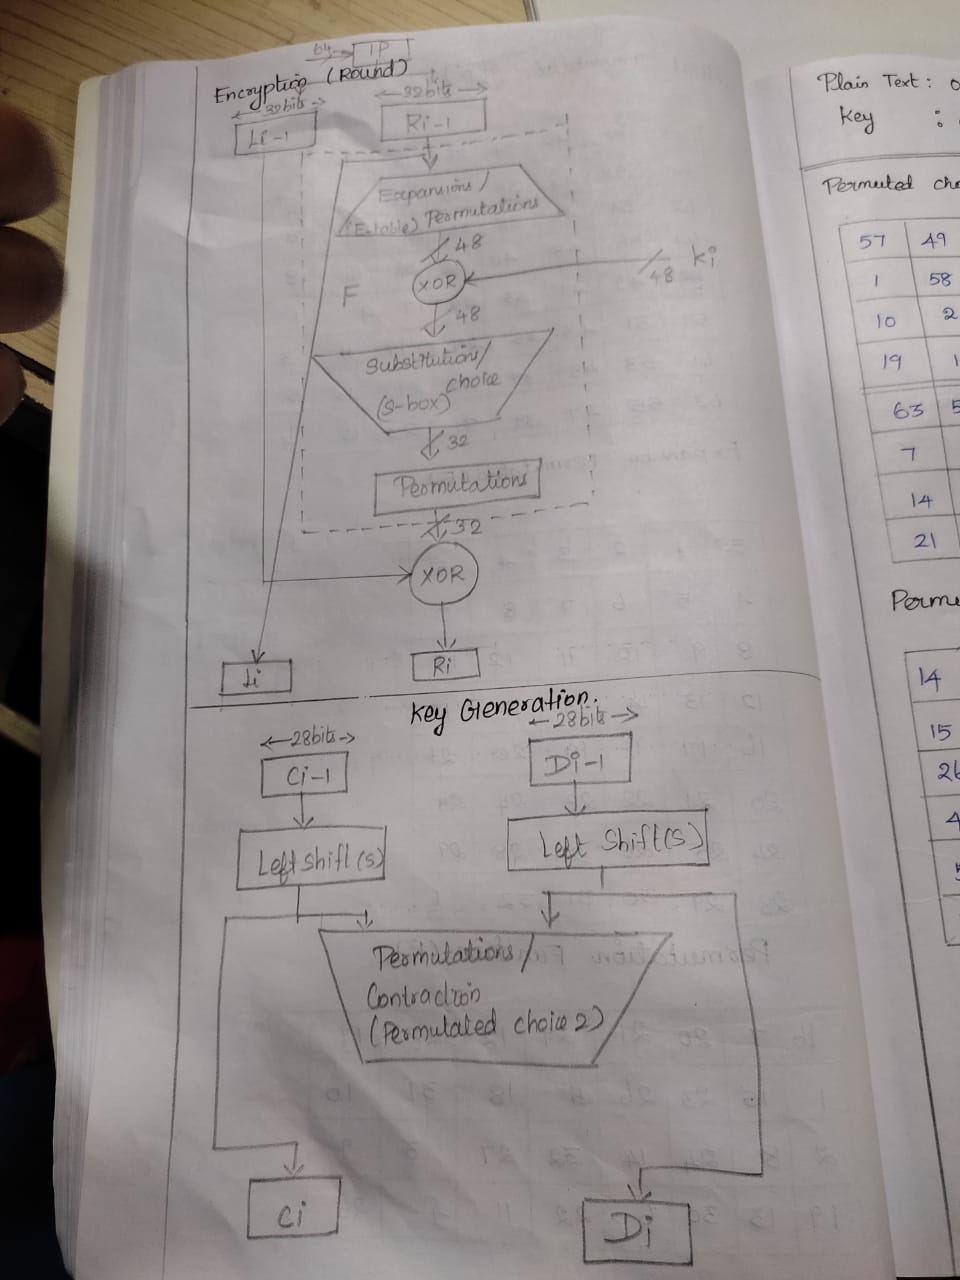 64 IP
Encryption (Round)
32bits
32bits
Li-1
Ri-1
Expansions/
(E-table) Permutations
48
XOR
48
Ki
F
48
Substitution/
choice
(S-box)
32
Permutations
32
XOR
Li
Ri
Key Generation.
28bits
28bits
Ci-1
Di-1
Left shift(s)
Left Shift(s)
Permutations/
Contraction
(Permutated choice 2)
Ci
Di
Plain Text :
Key :
Permuted
57 49
1 58
10 2
19 1
63 5
7
14
21
14
15
26
4